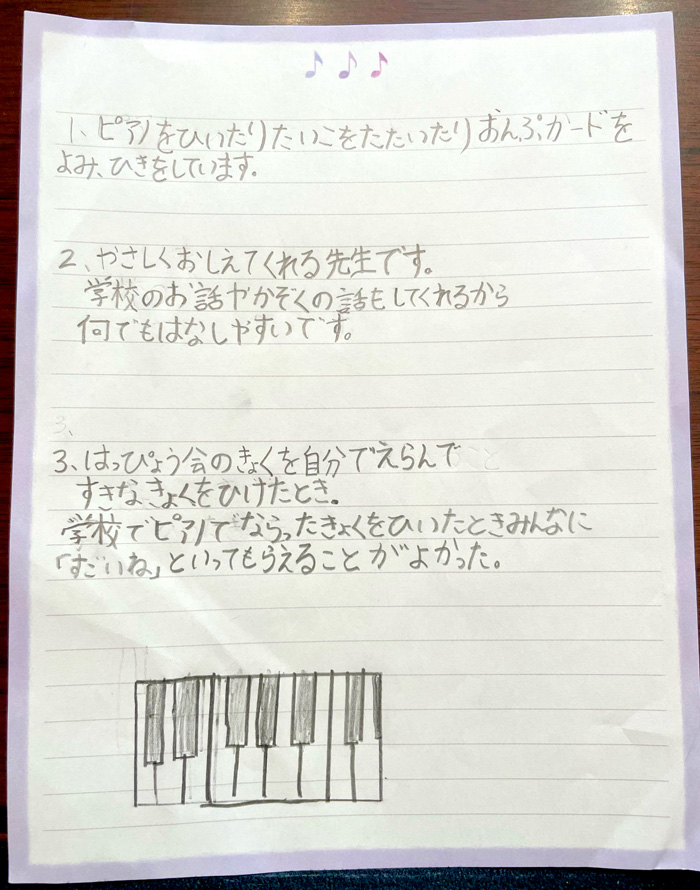 1、ピアノをひいたりたいこをたたいたりおんぷカードを
よみ、ひきをしています。
2、やさしくおしえてくれる先生です。
学校のお話やかぞくの話もしてくれるから
何でもはなしやすいです。
3、
3、はっぴょう会のきょくを自分でえらんで
すきなきょくをひけたとき。
学校でピアノでならったきょくをひいたときみんなに
「すごいね」といってもらえることがよかった。